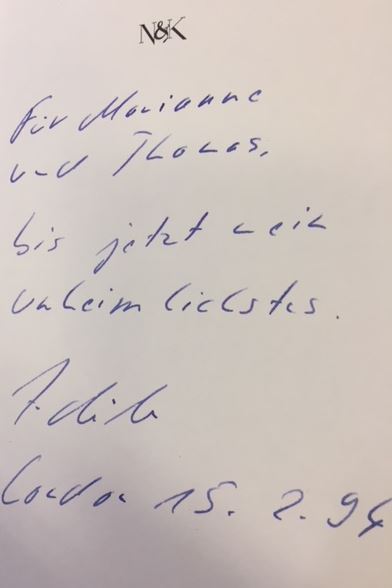 N&K
Für Marianne
und Thomas,
bis jetzt mein
unheimlichstes.
London 15. 2. 94